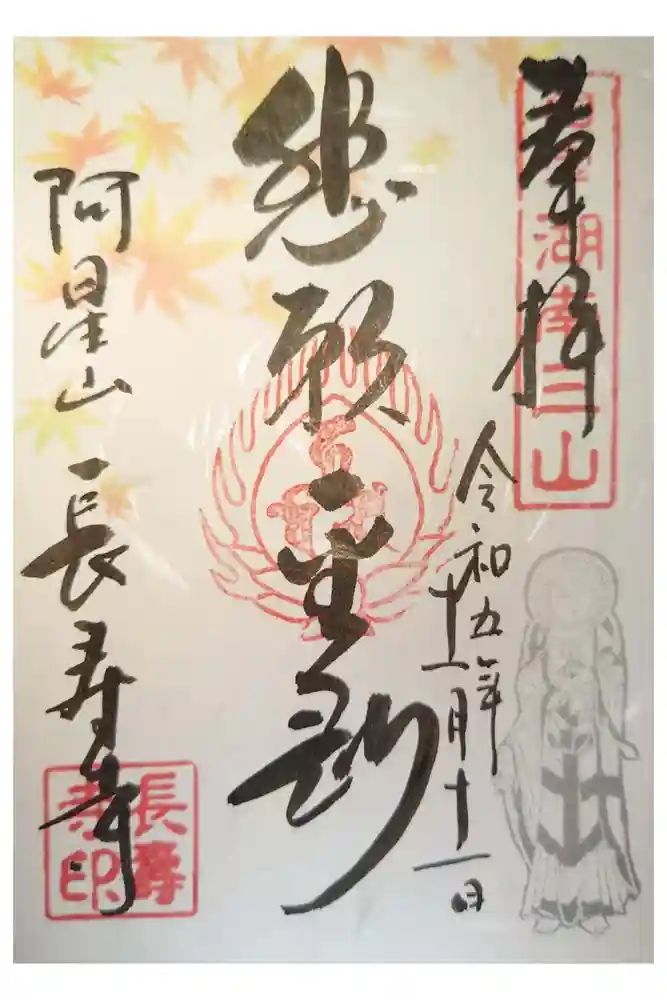 奉拝
湖南三山
令和五年
十一月十一日
悲願金剛
阿星山 長寿寺
長壽
寺印